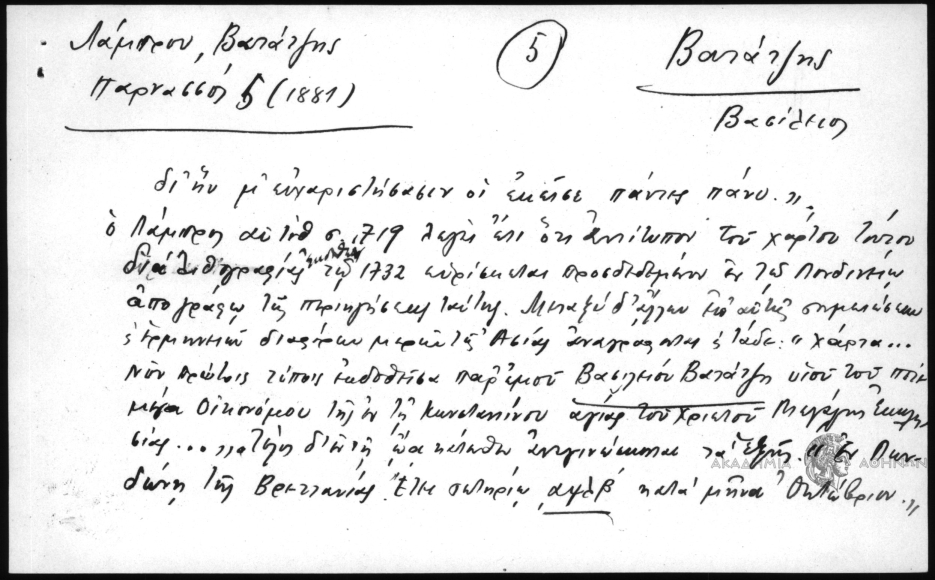 Λάμπρου, Βατάτζης
Παρνασσός 5 (1881)
5
Βατάτζης
Βασίλειος
δι' ἣν μ' εὐχαριστήσασιν οἱ ἐκεῖσε πάντες πάνυ."
ὁ Λάμπρος αὐτόθι σ. 719 λέγει ἔτι ὅτι ἀντίτυπον τοῦ χάρτου τούτου
διὰ λιθογραφίας ἐκδοθὲν τῷ 1732 εὑρίσκεται προσδεδεμένον ἐν τῷ Λονδινείῳ
ἀπογράφῳ τῆς περιηγήσεως ταύτης. Μεταξὺ δ' ἄλλων ἐπ' αὐτῆς σημειώσεων
ἑρμηνευτικῶν διαφόρων μερῶν τῆς Ἀσίας ἀναγράφονται τάδε: "Χάρτα...
νῦν πρώτοις τύποις ἐκδοθεῖσα παρ' ἐμοῦ Βασιλείου Βατάτζη υἱοῦ τοῦ ποτὲ
μεγάλου Οἰκονόμου τῆς ἐν τῇ Κωνσταντίνου ἁγίας τοῦ Χριστοῦ Μεγάλης Ἐκκλη-
σίας... κάτωθι ἀναγινώσκεται τὰ ἑξῆς. "ἐν Λον-
δώνῃ τῆς Βρεττανίας Ἔτει σωτηρίῳ αψλβ κατὰ μῆνα Ὀκτώβριον."
ΑΚΑΔΗΜΙΑ ΑΘΗΝΩΝ